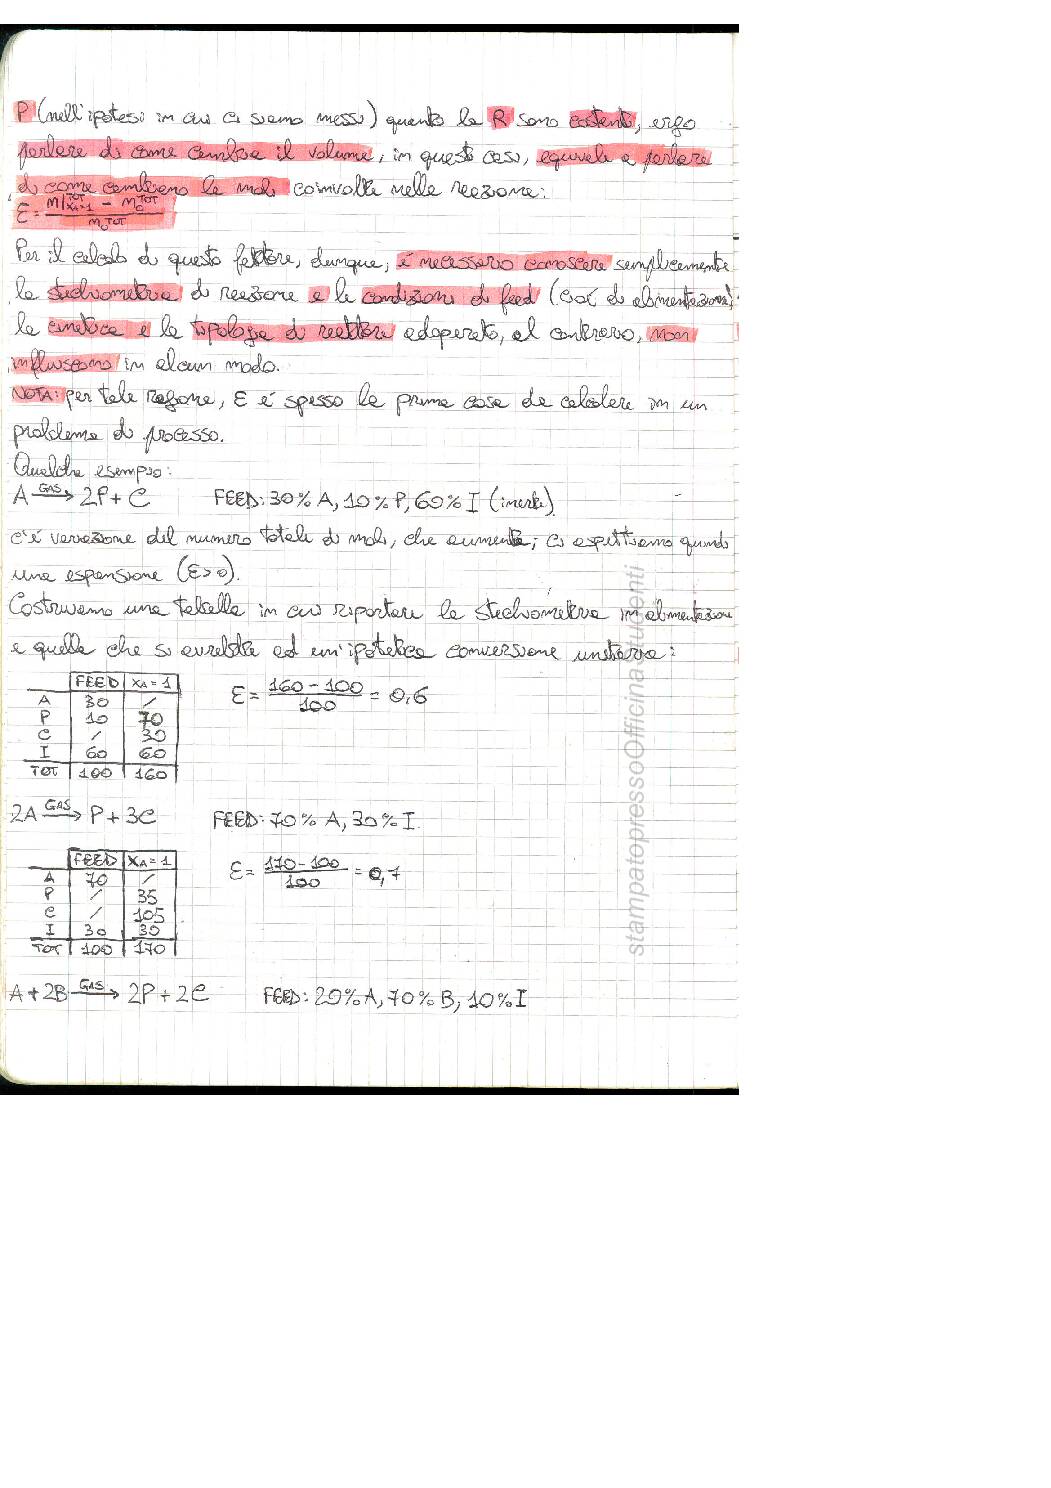 P (nell'ipotesi in cui ci siamo messi) quanto la R sono costanti, ergo
parlare di come cambia il volume, in questo caso, equivale a parlare
di come cambiano le moli coinvolte nella reazione:
ε = (n|ᵀᴼᵀ_XA=1 − n₀ᵀᴼᵀ) / n₀ᵀᴼᵀ
Per il calcolo di questo fattore, dunque, è necessario conoscere semplicemente
la stechiometria di reazione e le condizioni di feed (cioè di alimentazione);
la cinetica e la tipologia di reattore adoperato, al contrario, non
influiscono in alcun modo.
NOTA: per tale ragione, ε è spesso la prima cosa da calcolare in un
problema di processo.
Qualche esempio:
A —GAS→ 2P + C FEED: 30% A, 10% P, 60% I (inerte)
c'è variazione del numero totale di moli, che aumenta; ci aspettiamo quindi
una espansione (ε>0).
Costruiamo una tabella in cui riportare la stechiometria in alimentazione
e quella che si avrebbe ad un'ipotetica conversione unitaria:
FEED XA=1
A 30 /
P 10 70
C / 30
I 60 60
TOT 100 160
ε = (160 − 100)/100 = 0,6
2A —GAS→ P + 3C FEED: 70% A, 30% I
FEED XA=1
A 70 /
P / 35
C / 105
I 30 30
TOT 100 170
ε = (170 − 100)/100 = 0,7
A + 2B —GAS→ 2P + 2C FEED: 20% A, 70% B, 10% I
stampatopressoOfficinaStudenti